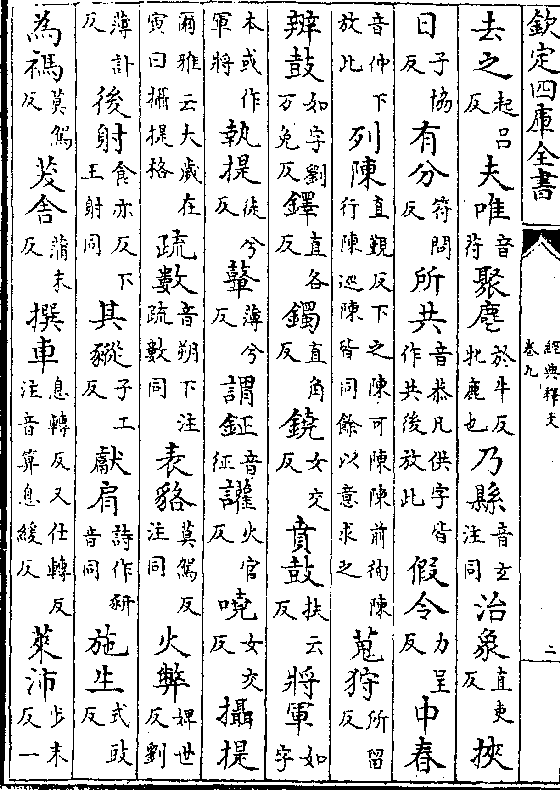 欽定四庫全書
經典釋文
卷九
二
去之起呂反夫唯音符聚麀於牛反牝鹿也乃縣音玄注同治象直吏反挾
日子協反有分符問反所共音恭凡供字皆作共後放此假令力呈反中春
音仲下放此列陳直覲反下之陳可陳陳前徇陳行陳巡陳皆同餘以意求之蒐狩所留反
辨鼓如字劉万免反鐸直各反鐲直角反鐃女交反賁鼓扶云反將軍如字
本或作軍將執提徒兮反鼙薄兮反謂鉦音征讙火官反嘵女交反攝提
爾雅云大歲在寅曰攝提格疏數音朔下注疏數同表貉莫駕反注同火弊婢世反劉
薄計反後射食亦反下王射同其豵子工反獻肩詩作豜音同施生式豉反
為禡莫駕反茇舍蒲末反撰車息轉反又仕轉反注音算息緩反萊沛步末反一